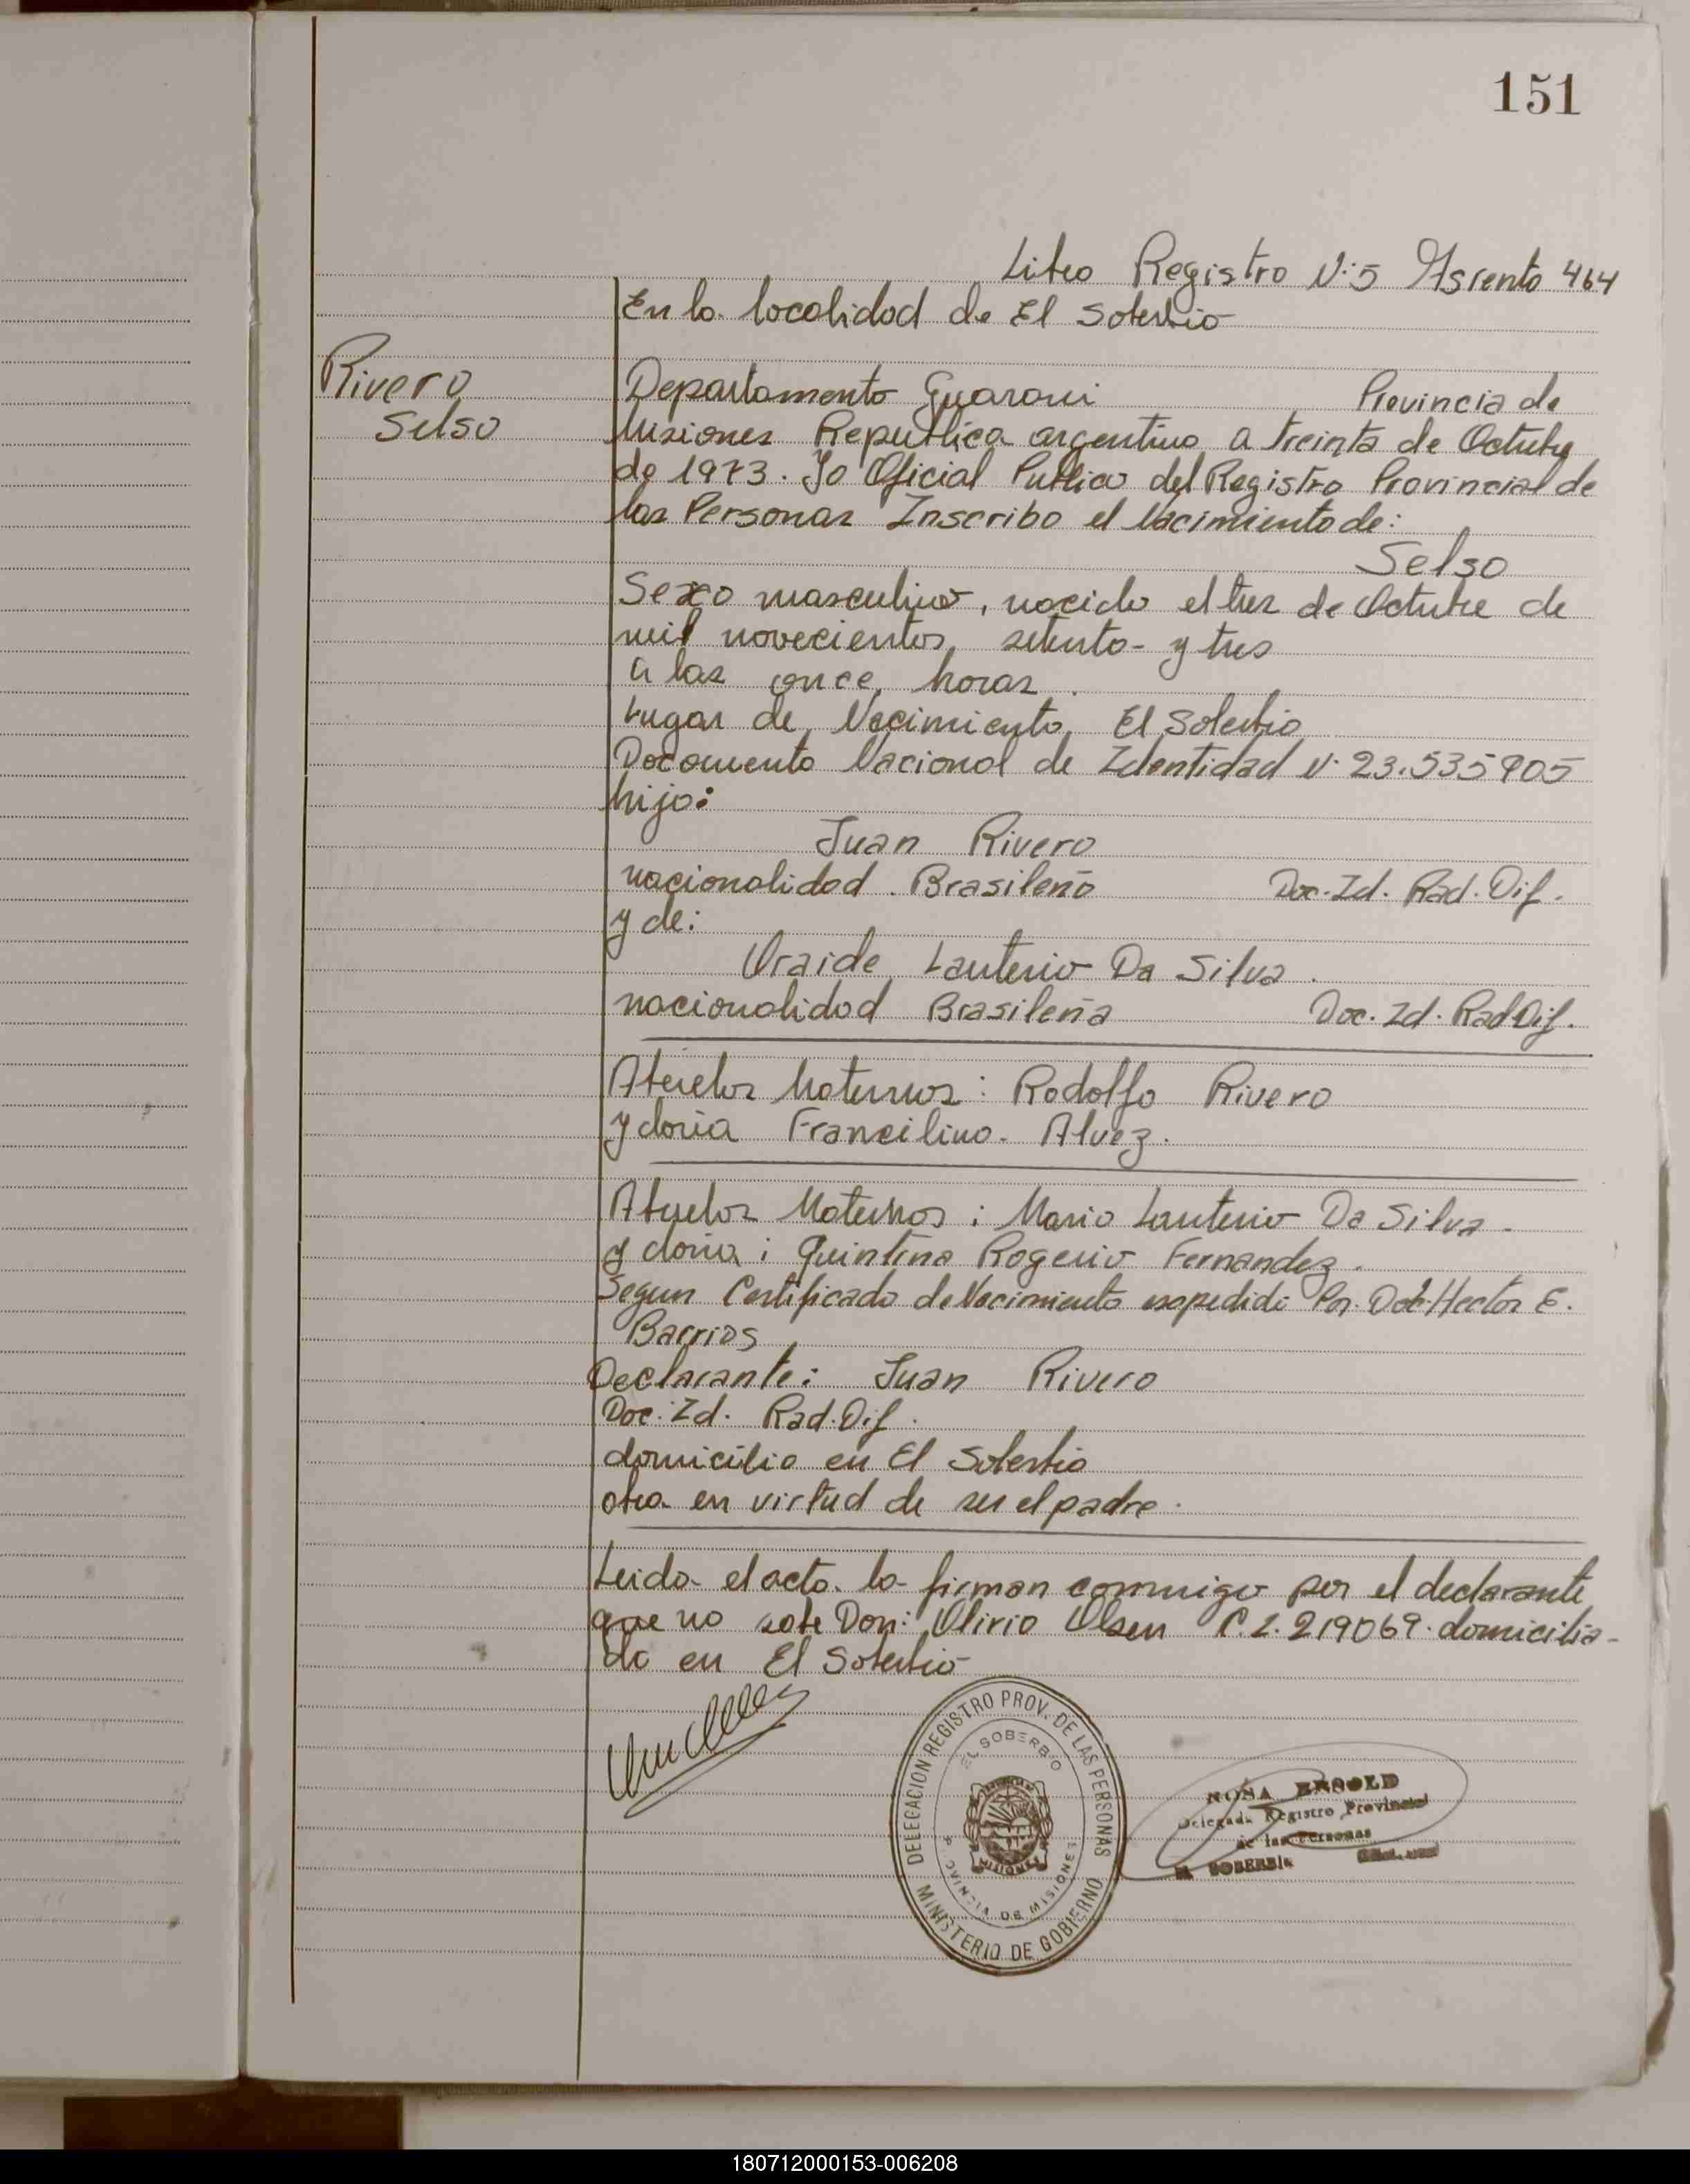 151
Libro Registro N: 5 Asiento 464
En la localidad de El Soberbio
Rivero
Selso
Departamento Guarani Provincia de
Misiones Republica argentina a treinta de Octubre
de 1973. Yo Oficial Publico del Registro Provincial de
las Personas Inscribo el Nacimiento de:
Selso
Sexo masculino, nacido el tres de Octubre de
mil novecientos setenta y tres
a las once horas.
Lugar de Nacimiento El Soberbio
Documento Nacional de Identidad N. 23.535905
hijo:
Juan Rivero
nacionalidad. Brasileño Doc. Id. Rad. Dif.
y de:
Oraide Lauterio Da Silva.
nacionalidad Brasileña Doc. Id. Rad Dif.
Abuelos Maternos: Rodolfo Rivero
y doña Francilina. Alvez.
Abuelos Maternos: Mario Lauterio Da Silva.
y doña: Quintina Rogerio Fernandez.
Segun Certificado de Nacimiento expedido Por. Doc. Hector E.
Barrios
Declarante: Juan Rivero
Doc. Id. Rad. Dif.
domicilio en El Soberbio
obra en virtud de ser el padre.
Leida el acta la firman conmigo por el declarante
que no sabe Don: Olirio Olsen C.I. 219069. domicilia-
do en El Soberbio
DELEGACION REGISTRO PROV. DE LAS PERSONAS
EL SOBERBIO
MISIONES
PROVINCIA DE MISIONES
MINISTERIO DE GOBIERNO
Delegada Registro Provincial
de las Personas
EL SOBERBIO
180712000153-006208